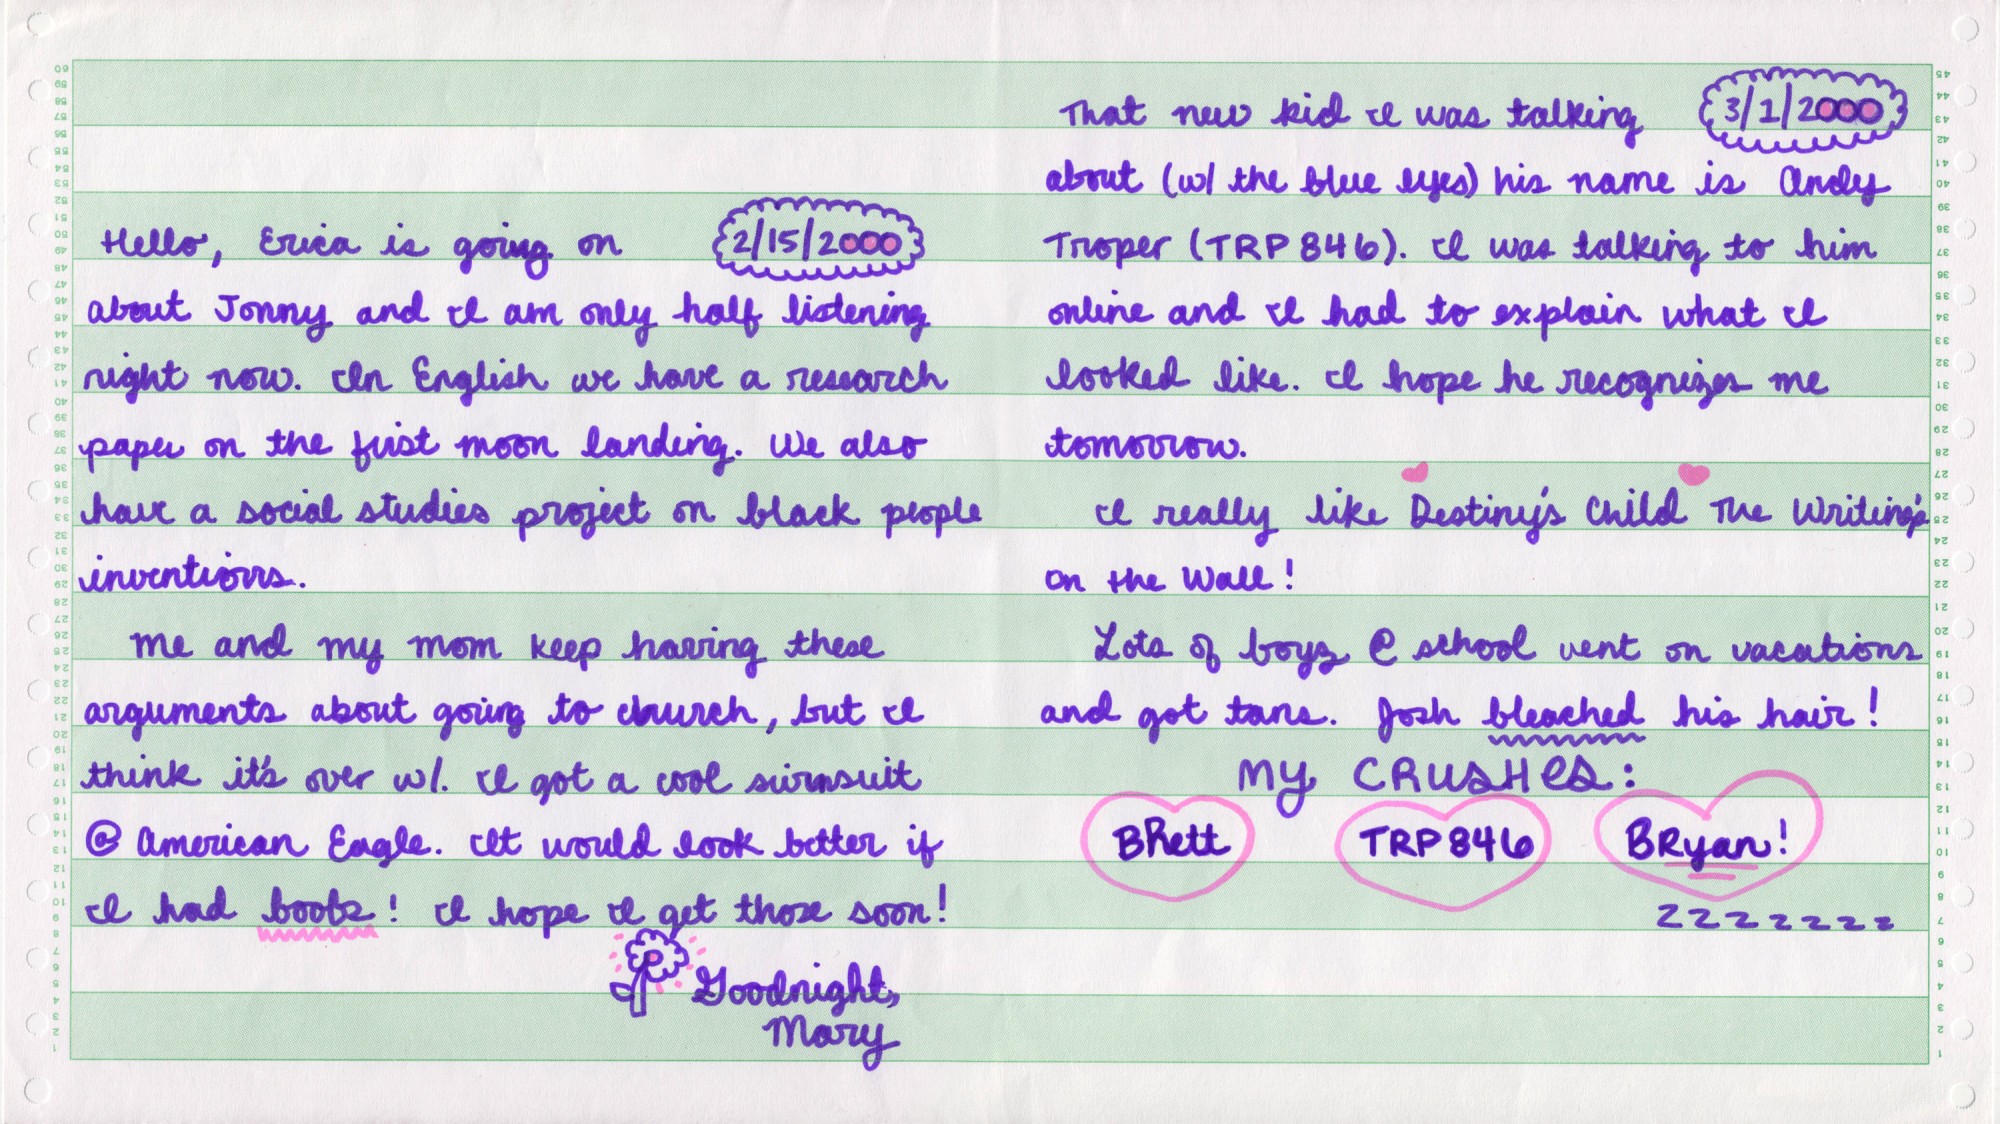 Hello, Erica is going on 2/15/2000
about Jonny and I am only half listening
right now. In English we have a research
paper on the first moon landing. We also
have a social studies project on black people
inventions.
Me and my mom keep having these
arguments about going to church, but I
think it's over w/. I got a cool swimsuit
@ American Eagle. It would look better if
I had boobs! I hope I get those soon!
Goodnight,
Mary
That new kid I was talking 3/1/2000
about (w/ the blue eyes) his name is Andy
Troper (TRP846). I was talking to him
online and I had to explain what I
looked like. I hope he recognizes me
tomorrow.
I really like Destiny's Child The Writing's
on the Wall!
Lots of boys @ school went on vacations
and got tans. Josh bleached his hair!
MY CRUSHES:
BRett TRP846 BRyan!
zzzzzzz